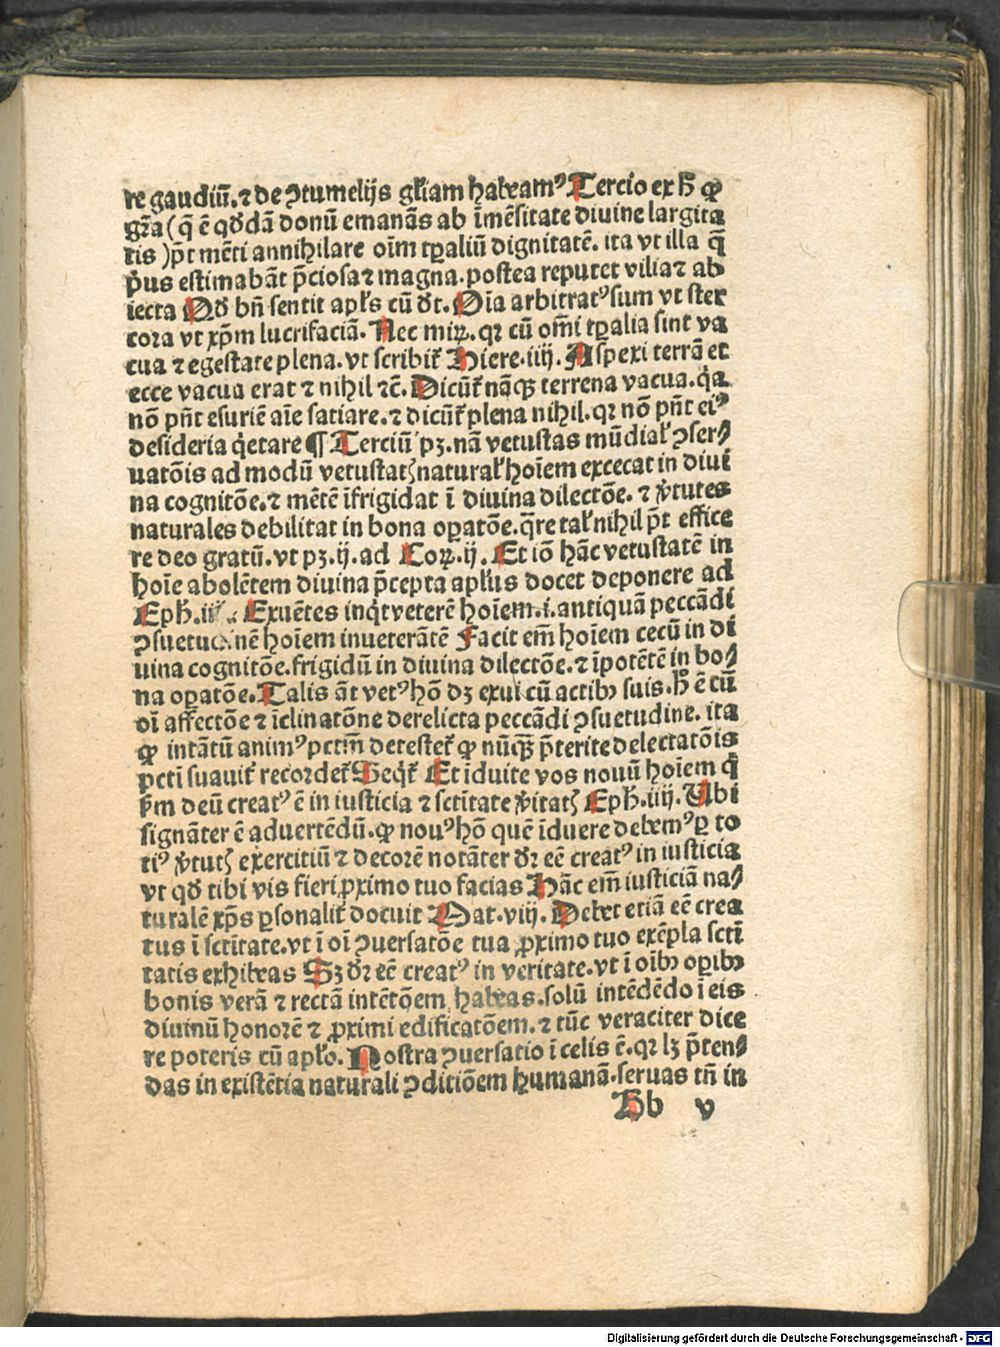 re gaudiū. ⁊ de ꝯtumelijs gl̄iam habeamꝰ Tercio ex h̄ ꝙ
gr̄a (q̄ ē qd̄dā donū emanās ab īmēsitate diuine largita
tis) pt̄ mēti annihilare oīm tꝑaliū dignitatē. ita vt illa q̄
pͥus estimabāt p̄ciosa ⁊ magna. postea reputet vilia ⁊ ab
iecta Qd̄ bn̄ sentit apl̓s cū dt̄. Oīa arbitratꝰ sum vt ster
cora vt xp̄m lucrifaciā. Nec miꝝ. qꝛ cū om̄i tꝑalia sint va
cua ⁊ egestate plena. vt scribit᷑ Hiere. iiij. Aspexi terrā et
ecce vacua erat ⁊ nihil ⁊c̄. Dicūt᷑ nāqꝫ terrena vacua. qͥa
nō pn̄t esuriē aīe satiare. ⁊ dicūt᷑ plena nihil. qꝛ nō pn̄t eiꝰ
desideria qͥetare ¶ Terciū pꝫ. nā vetustas mūdial̓ ꝯser⸗
uatōis ad modū vetustatꝭ natural̓ hoīem excecat in diui
na cognitōe. ⁊ mētē īfrigidat ī diuina dilectōe. ⁊ v̓tutes
naturales debilitat in bona oꝑatōe. q̄re tal̓ nihil pt̄ effice
re deo gratū. vt pꝫ. ij. ad Coꝝ. ij. Et iō hāc vetustatē in
hoīe abolētem diuina p̄cepta apl̓us docet deponere ad
Eph. Exuētes inqͥt veterē hoīem. i. antiquā peccādi
hoīem inueterātē Facit em̄ hoīem cecū in di
uina cognitōe. frigidū in diuina dilectōe. ⁊ īpotētē in bo⸗
na oꝑatōe. Talis āt vetꝰ hō dꝫ exui cū actibꝰ suis. h̄ ē cū
oī affectōe ⁊ īclinatōne derelicta peccādi ꝯsuetudine. ita
ꝙ intātū animꝰ pctm̄ detestet᷑ ꝙ nūqꝫ p̄terite delectatōis
pcti suauit᷑ recordet᷑ Seqt᷑ Et īduite vos nouū hoīem qͥ
sm̄ deū creatꝰ ē in iusticia ⁊ sctītate v̓itatꝭ Eph. iiij. Ubi
signāter ē aduertēdū. ꝙ nouꝰ hō quē īduere debemꝰ ꝑ to
tiꝰ v̓tutꝭ exercitiū ⁊ decorē notāter dr̄ eē creatꝰ in iusticia
vt qd̄ tibi vis fieri ꝓximo tuo facias Hāc em̄ iusticiā na⸗
turalē xp̄s ꝑsonalit᷑ docuit Mat. viij. Debet etiā eē crea
tus ī sctītate. vt ī oī ꝯuersatōe tua ꝓximo tuo exēpla scti
tatis exhibeas Sꝫ dr̄ eē creatꝰ in veritate. vt ī oībꝰ oꝑibꝰ
bonis verā ⁊ rectā intētōem habeas. solū intēdēdo ī eis
diuinū honorē ⁊ ꝓximi edificatōem. ⁊ tūc veraciter dice
re poteris cū apl̓o. Nostra ꝯuersatio ī celis ē. qꝛ lꝫ p̄ten⸗
das in existētia naturali ꝯditiōem humanā. seruas tn̄ in
Hb v
Digitalisierung gefördert durch die Deutsche Forschungsgemeinschaft - DFG